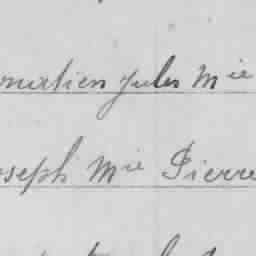 onatien jules Mie
oseph Mie Pierre